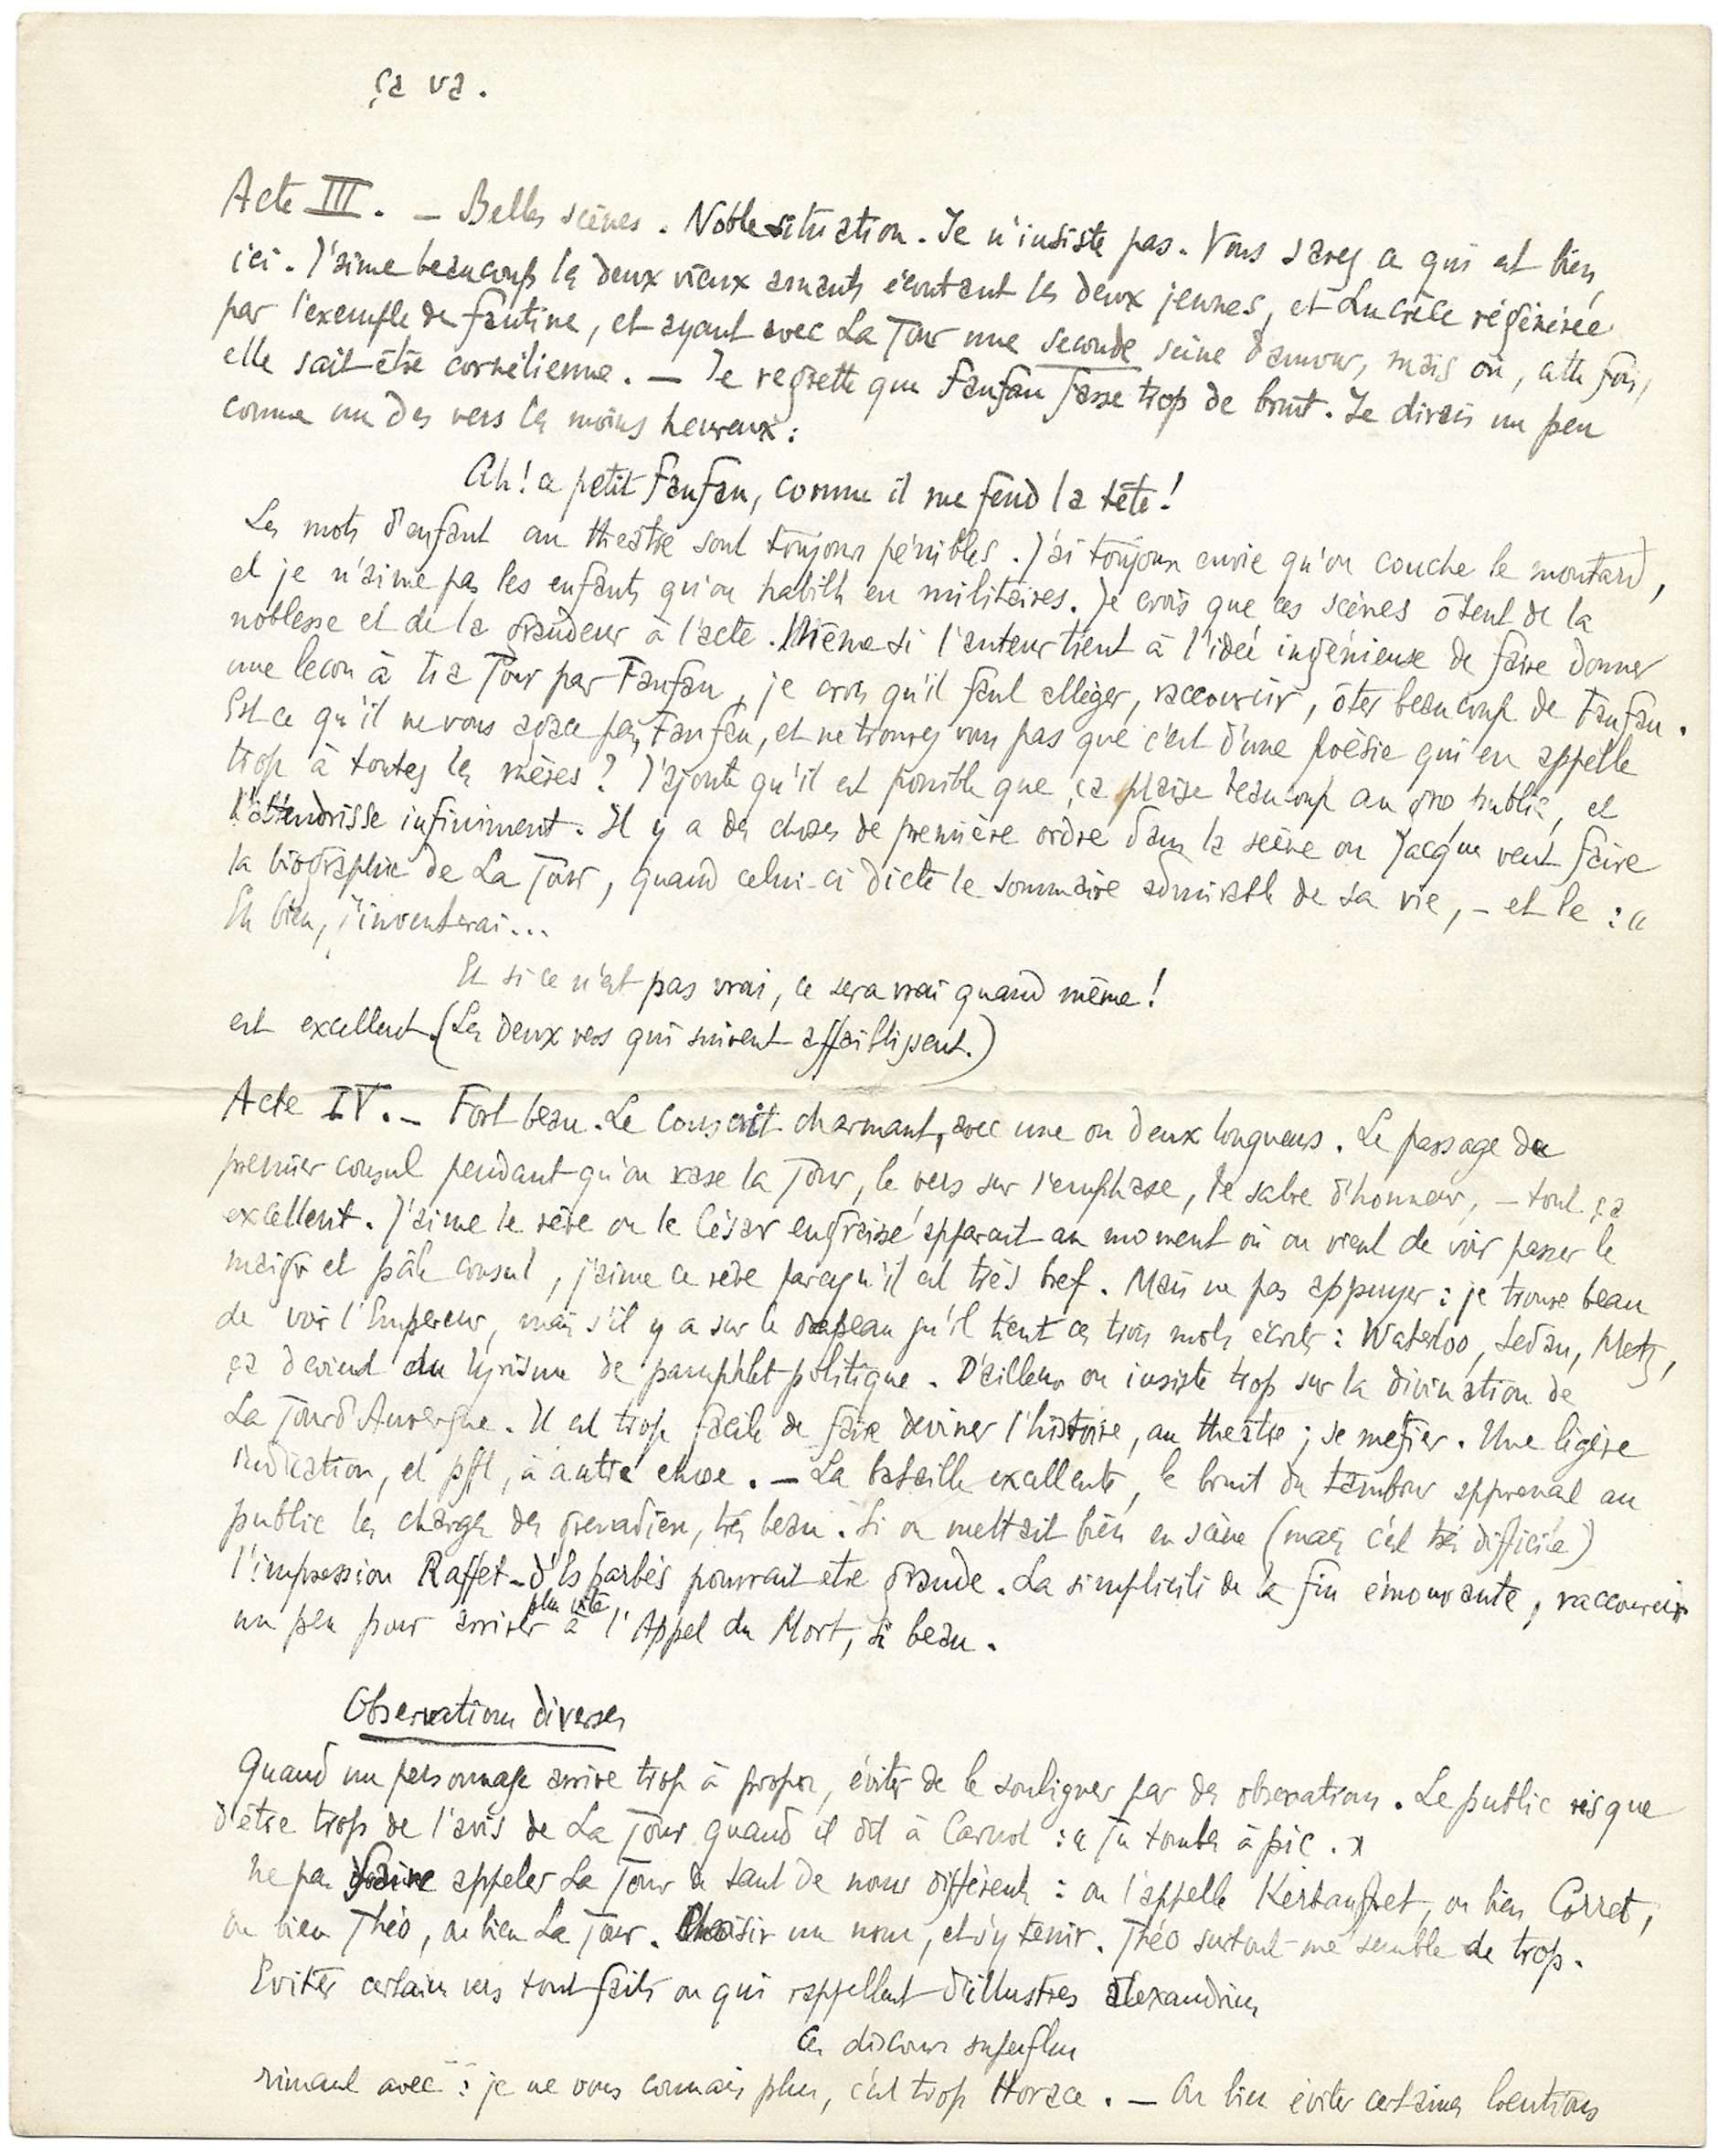 ça va.
Acte III. — Belles scènes. Noble situation. Je n'insiste pas. Vous savez ce qui est bien,
ici. J'aime beaucoup les deux vieux amants écoutant les deux jeunes, et Lucrèce régénérée
par l'exemple de Fantine, et ayant avec La Tour une seconde scène d'amour, mais où, cette fois,
elle sait être cornélienne. — Je regrette que Fanfan fasse trop de bruit. Je dirais un peu
comme un des vers les moins heureux :
Ah! ce petit Fanfan, comme il me fend la tête!
Les mots d'enfant au théâtre sont toujours pénibles. J'ai toujours envie qu'on couche le moutard,
et je n'aime pas les enfants qu'on habille en militaires. Je crois que ces scènes ôtent de la
noblesse et de la grandeur à l'acte. Même si l'auteur tient à l'idée ingénieuse de faire donner
une leçon à La Tour par Fanfan, je crois qu'il faut alléger, raccourcir, ôter beaucoup de Fanfan.
Est ce qu'il ne vous agace pas, Fanfan, et ne trouvez vous pas que c'est d'une poésie qui en appelle
trop à toutes les mères? J'ajoute qu'il est possible que ça plaise beaucoup au gros public, et
l'attendrisse infiniment. Il y a des choses de première ordre dans la scène ou Jacques veut faire
la biographie de La Tour, quand celui-ci dicte le sommaire admirable de sa vie, – et le : «
Eh bien, j'inventerai...
Et si ce n'est pas vrai, ce sera vrai quand même!
est excellent. (Les deux vers qui suivent affaiblissent.)
Acte IV. — Fort beau. Le conscrit charmant, avec une ou deux longueurs. Le passage du
premier consul pendant qu'on rase la Tour, le vers sur l'emphase, le sabre d'honneur, — tout ça
excellent. J'aime le rêve ou le César engraissé apparait au moment où on vient de voir passer le
maigre et pâle consul, j'aime ce rêve parcequ'il est très bref. Mais ne pas appuyer : je trouve beau
de voir l'Empereur, mais s'il y a sur le drapeau qu'il tient ces trois mots écrits : Waterloo, Sedan, Metz,
ça devient du lyrisme de pamphlet politique. D'ailleurs on insiste trop sur la divination de
La Tour d'Auvergne. Il est trop facile de faire deviner l'histoire, au théâtre ; se méfier. Une légère
indication, et pft, à autre chose. — La bataille excellente, le bruit du tambour apprenant au
public les charges des grenadiers, très beau. Si on mettait bien en scène (mais c'est très difficile)
l'impression Raffet - d'Esparbès pourrait être grande. La simplicité de la fin émouvante, raccourcir
un peu pour arriver plus vite à l'Appel du Mort, si beau.
Observations diverses
Quand un personnage arrive trop à propos, éviter de le souligner par des observations. Le public risque
d'être trop de l'avis de La Tour quand il dit à Carnot : « Tu tombes à pic. »
Ne pas faire appeler La Tour de tant de noms différents : on l'appelle Kerbauffret, ou bien Corret,
ou bien Théo, ou bien La Tour. Choisir un nom, et s'y tenir. Théo surtout me semble de trop.
Eviter certains vers tout faits ou qui rappellent d'illustres alexandrins
Ces discours superflus
rimant avec : je ne vous connais plus, c'est trop Horace. — Ou bien éviter certaines locutions